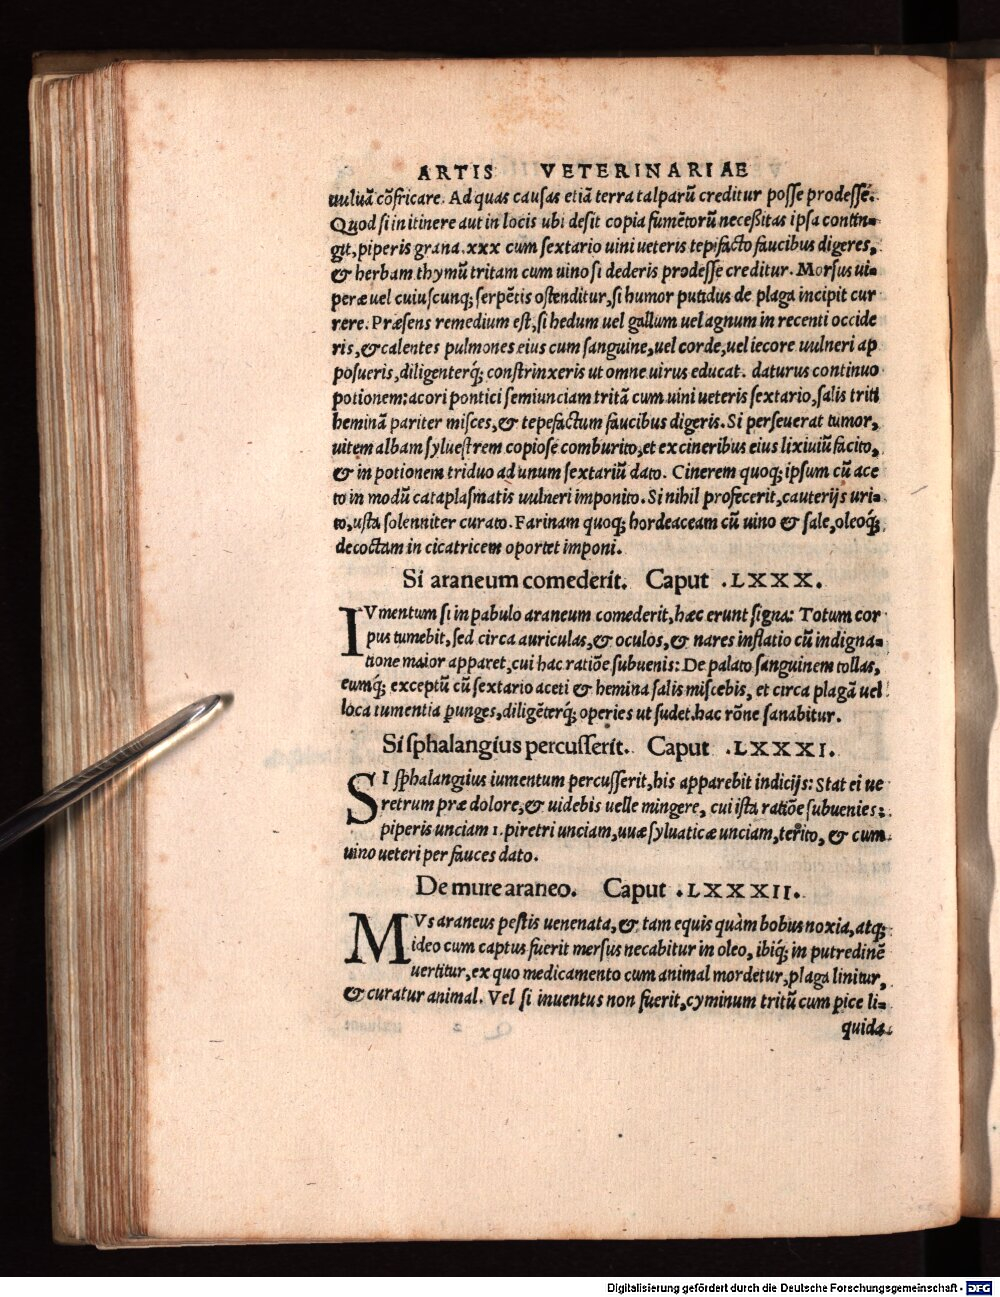 ARTIS VETERINARIAE
uuluā cōfricare. Ad quas causas etiā terra talparū creditur posse prodesse.
Quod si in itinere aut in locis ubi desit copia fumētorū necessitas ipsa contin-
git, piperis grana .xxx cum sextario uini ueteris tepefacto faucibus digeres,
& herbam thymū tritam cum uino si dederis prodesse creditur. Morsus ui-
peræ uel cuiuscunq; serpētis ostenditur, si humor putidus de plaga incipit cur
rere. Præsens remedium est, si hedum uel gallum uel agnum in recenti occide
ris, & calentes pulmones eius cum sanguine, uel corde, uel iecore uulneri ap
posueris, diligenterq́; constrinxeris ut omne uirus educat. daturus continuo
potionem: acori pontici semiunciam tritā cum uini ueteris sextario, salis triti
heminā pariter misces, & tepefactum faucibus digeris. Si perseuerat tumor,
uitem albam syluestrem copiose comburito, et ex cineribus eius lixiuiū facito,
& in potionem triduo ad unum sextariū dato. Cinerem quoq; ipsum cū ace
to in modū cataplasmatis uulneri imponito. Si nihil profecerit, cauterijs uri-
to, usta solenniter curato. Farinam quoq; hordeaceam cū uino & sale, oleoq́;
decoctam in cicatricem oportet imponi.
Si araneum comederit. Caput .LXXX.
IVmentum si in pabulo araneum comederit, hæc erunt signa: Totum cor
pus tumebit, sed circa auriculas, & oculos, & nares inflatio cū indigna-
tione maior apparet, cui hac ratiōe subuenis: De palato sanguinem tollas,
eumq́; exceptū cū sextario aceti & hemina salis miscebis, et circa plagā uel
loca tumentia punges, diligēterq́; operies ut sudet. hac rōne sanabitur.
Si sphalangius percusserit. Caput .LXXXI.
SI sphalangius iumentum percusserit, his apparebit indicijs: Stat ei ue
retrum præ dolore, & uidebis uelle mingere, cui ista ratiōe subuenies:
piperis unciam 1. piretri unciam, uuæ syluaticæ unciam, terito, & cum
uino ueteri per fauces dato.
De mure araneo. Caput .LXXXII.
MVs araneus pestis uenenata, & tam equis quàm bobus noxia, atq;
ideo cum captus fuerit mersus necabitur in oleo, ibiq́; in putredinē
uertitur, ex quo medicamento cum animal mordetur, plaga linitur,
& curatur animal. Vel si inuentus non fuerit, cyminum tritū cum pice li-
quida
Digitalisierung gefördert durch die Deutsche Forschungsgemeinschaft - DFG